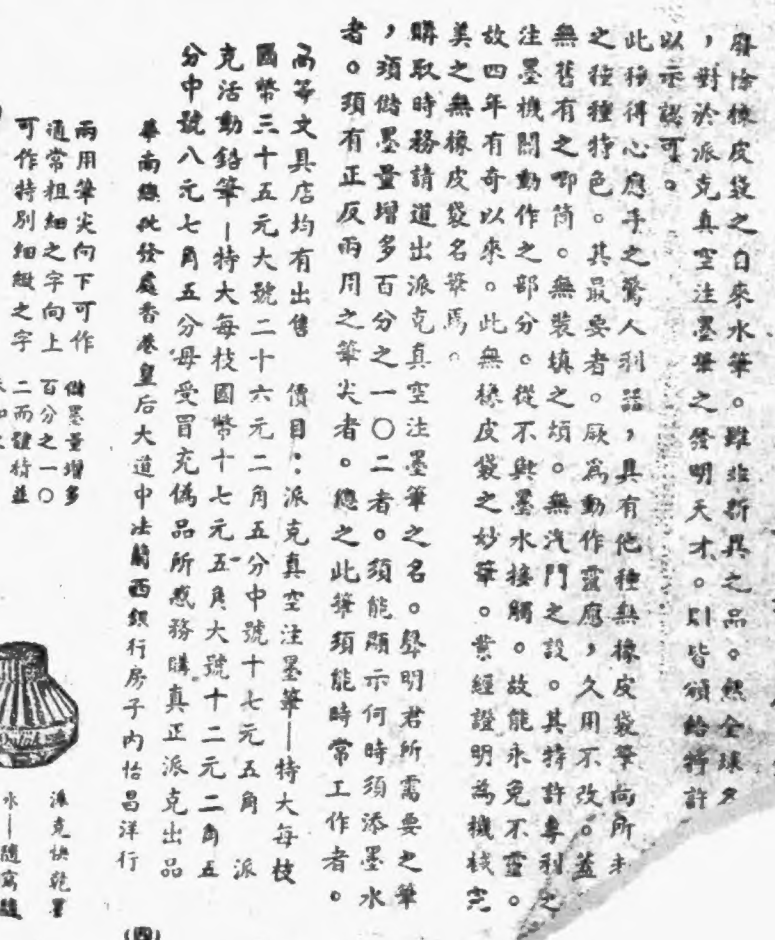 廢除橡皮袋之自來水筆。雖非新異之品。然全球
，對於派克真空注墨筆之發明天才。則皆頒給特許
以示認可。
此種得心應手之驚人利器，具有他種無橡皮袋筆尚所未
之種種特色。其最要者。厥為動作靈應，久用不改。蓋
無舊有之唧筒。無裝填之煩。無汽門之設。其特許專利之
注墨機關動作之部分。從不與墨水接觸。故能永免不靈。
故四年有奇以來。此無橡皮袋之妙筆。業經證明為機械完
美之無橡皮袋名筆焉。
購取時務請道出派克真空注墨筆之名。聲明君所需要之筆
，須儲墨量增多百分之一〇二者。須能顯示何時須添墨水
者。須有正反兩用之筆尖者。總之此筆須能時常工作者。
等文具店均有出售　價目：派克真空注墨筆—特大每枝
國幣三十五元大號二十六元二角五分中號十七元五角　派
克活動鉛筆—特大每枝國幣十七元五角大號十二元二角五
分中號八元七角五分毋受冒充偽品所惑務購真正派克出品
華南總批發處香港皇后大道中法蘭西銀行房子內怡昌洋行
兩用筆尖向下可作
通常粗細之字向上
可作特別細緻之字
儲墨量增多
百分之一〇
二而體積並
派克快乾墨
水—隨寫隨
(四)